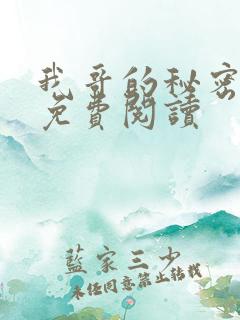 我哥的秘密
免費閱讀
藍家三少
未經同意禁止轉載